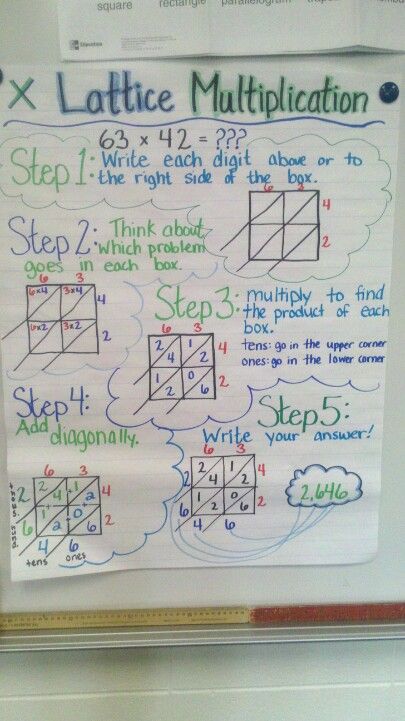 square rectangle parallelogram
Education
x Lattice Multiplication
63 x 42 = ???
Step 1: Write each digit above or to
the right side of the box.
6 3
4
2
Step 2: Think about
which problem
goes in each box.
6 3
6x4 3x4 4
6x2 3x2 2
Step 3: multiply to find
the product of each
box.
tens: go in the upper corner
ones: go in the lower corner
6 3
2 4 1 2 4
1 2 0 6 2
Step 4:
Add diagonally.
6 3
2 2 4 1 2 4
6 1 2 0 6 2
4 6
tens ones
Step 5:
Write your answer!
6 3
2 2 4 1 2 4
6 1 2 0 6 2
4 6
2,646